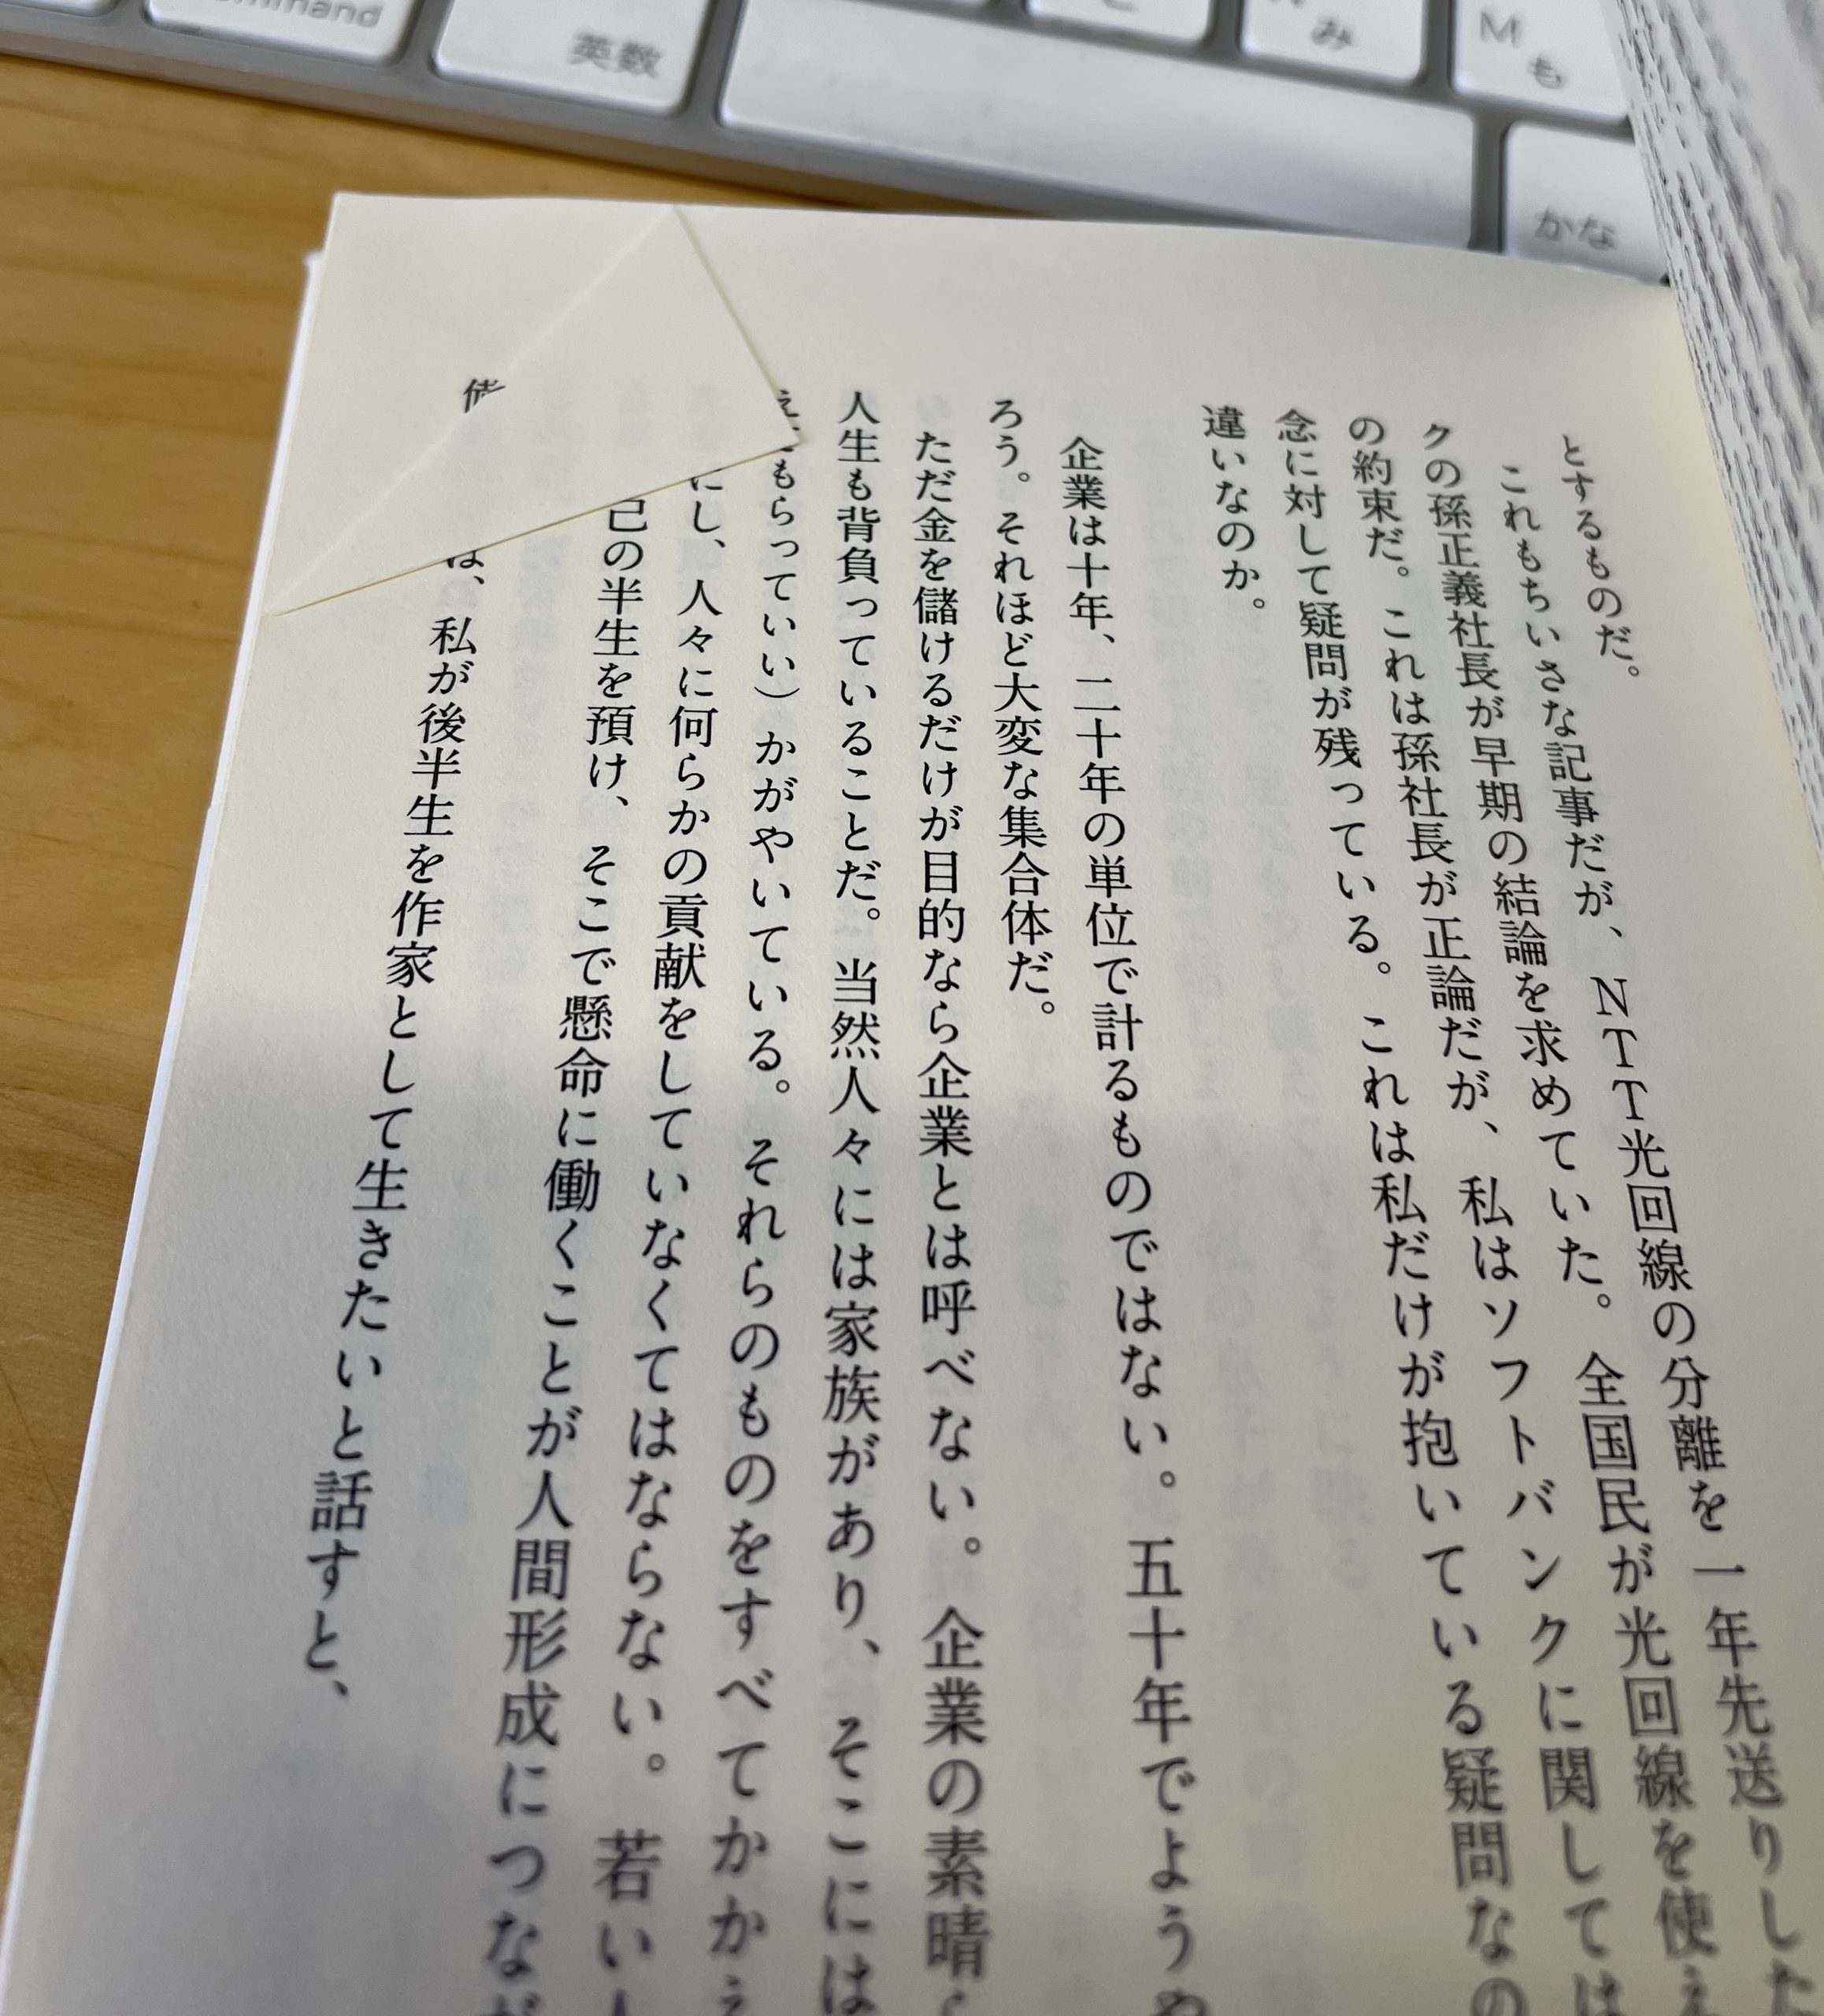 とするものだ。
これもちいさな記事だが、NTT光回線の分離を一年先送りした
クの孫正義社長が早期の結論を求めていた。全国民が光回線を使え
の約束だ。これは孫社長が正論だが、私はソフトバンクに関しては
念に対して疑問が残っている。これは私だけが抱いている疑問なの
違いなのか。
企業は十年、二十年の単位で計るものではない。五十年でようや
ろう。それほど大変な集合体だ。
ただ金を儲けるだけが目的なら企業とは呼べない。企業の素晴ら
人生も背負っていることだ。当然人々には家族があり、そこには
もらっていい）かがやいている。それらのものをすべてかかえ
にし、人々に何らかの貢献をしていなくてはならない。若い人
己の半生を預け、そこで懸命に働くことが人間形成につなが
は、私が後半生を作家として生きたいと話すと、
command
英数
み
M
も
かな